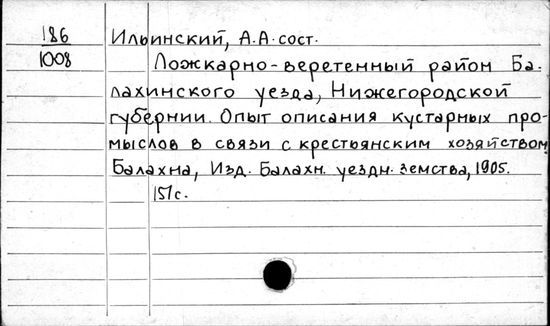 186
1008
Ильинский, А.А. сост.
Ложкарно-веретенный район Ба-
лахинского уезда, Нижегородской
губернии. Опыт описания кустарных про-
мыслов в связи с крестьянским хозяйством
Балахна, Изд. Балахн. уездн. земства, 1905.
151 с.